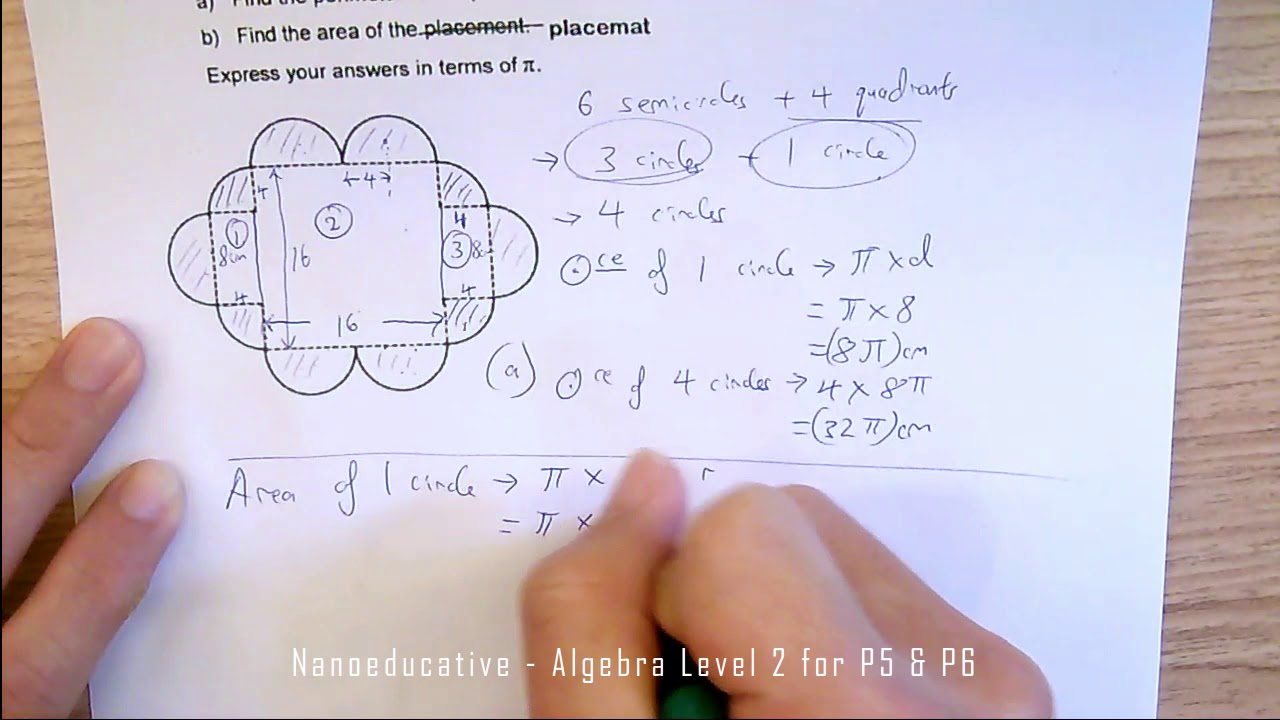 a) Find the
b) Find the area of the placement. placemat
Express your answers in terms of π.
6 semicircles + 4 quadrants
→ 3 circles + 1 circle
→ 4 circles
ce of 1 circle → π x d
= π x 8
=(8π)cm
(a) ce of 4 circles → 4 x 8π
=(32π)cm
4
←4→
1
8cm
4
2
16
16
4
3
8cm
4
Area of 1 circle → π x r
= π x
Nanoeducative - Algebra Level 2 for P5 & P6